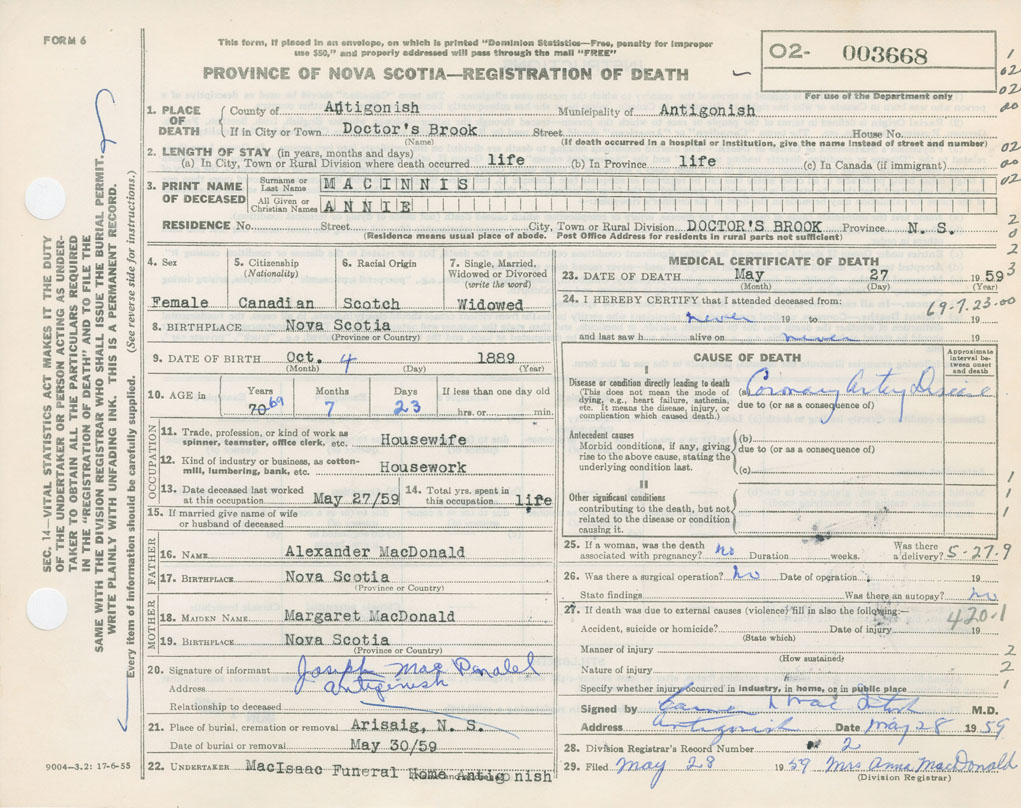 FORM 6
This form, if placed in an envelope, on which is printed "Dominion Statistics—Free, penalty for improper
use $50," and properly addressed will pass through the mail "FREE"
O2- 003668
For use of the Department only
PROVINCE OF NOVA SCOTIA—REGISTRATION OF DEATH
1. PLACE OF DEATH
County of Antigonish Municipality of Antigonish
If in City or Town Doctor's Brook Street House No.
(Name) (If death occurred in a hospital or institution, give the name instead of street and number)
2. LENGTH OF STAY (in years, months and days)
(a) In City, Town or Rural Division where death occurred life (b) In Province life (c) In Canada (if immigrant)
3. PRINT NAME OF DECEASED
Surname or Last Name MACINNIS
All Given or Christian Names ANNIE
RESIDENCE No. Street City, Town or Rural Division DOCTOR'S BROOK Province N. S.
(Residence means usual place of abode. Post Office Address for residents in rural parts not sufficient)
4. Sex
Female
5. Citizenship (Nationality)
Canadian
6. Racial Origin
Scotch
7. Single, Married, Widowed or Divorced (write the word)
Widowed
8. BIRTHPLACE Nova Scotia
(Province or Country)
9. DATE OF BIRTH Oct. 4 1889
(Month) (Day) (Year)
10. AGE in
Years Months Days If less than one day old
70 69 7 23 hrs. or min.
OCCUPATION
11. Trade, profession or kind of work as spinner, teamster, office clerk, etc. Housewife
12. Kind of industry or business, as cotton-mill, lumbering, bank, etc. Housework
13. Date deceased last worked at this occupation May 27/59
14. Total yrs. spent in this occupation life
15. If married give name of wife or husband of deceased
FATHER
16. NAME Alexander MacDonald
17. BIRTHPLACE Nova Scotia
(Province or Country)
MOTHER
18. MAIDEN NAME Margaret MacDonald
19. BIRTHPLACE Nova Scotia
(Province or Country)
20. Signature of informant Joseph MacDonald
Address Antigonish
Relationship to deceased
21. Place of burial, cremation or removal Arisaig, N. S.
Date of burial or removal May 30/59
22. UNDERTAKER MacIsaac Funeral Home Antigonish
9004—3.2: 17-6-55
MEDICAL CERTIFICATE OF DEATH
23. DATE OF DEATH May 27 1959
(Month) (Day) (Year)
24. I HEREBY CERTIFY that I attended deceased from: 69-7.23-00
never 19 to 19
and last saw h alive on never 19
CAUSE OF DEATH
Approximate interval between onset and death
I
Disease or condition directly leading to death
(This does not mean the mode of dying, e.g., heart failure, asthenia, etc. It means the disease, injury, or complication which caused death.)
(a) Coronary Artery Disease
due to (or as a consequence of)
Antecedent causes
Morbid conditions, if any, giving rise to the above cause, stating the underlying condition last.
(b)
due to (or as a consequence of)
(c)
II
Other significant conditions
contributing to the death, but not related to the disease or condition causing it.
25. If a woman, was the death associated with pregnancy? no Duration weeks. Was there a delivery? 5-27.9
26. Was there a surgical operation? no Date of operation 19
State findings Was there an autopsy? no
27. If death was due to external causes (violence) fill in also the following:—
420.1
Accident, suicide or homicide? Date of injury 19
(State which)
Manner of injury
(How sustained)
Nature of injury
Specify whether injury occurred in industry, in home, or in public place
Signed by M.D.
Address Antigonish Date May 28 1959
28. Division Registrar's Record Number 2
29. Filed May 28 1959 Mrs Anna MacDonald
(Division Registrar)
SEC. 14—VITAL STATISTICS ACT MAKES IT THE DUTY
OF THE UNDERTAKER OR PERSON ACTING AS UNDER-
TAKER TO OBTAIN ALL THE PARTICULARS REQUIRED
IN THE "REGISTRATION OF DEATH" AND TO FILE THE
SAME WITH THE DIVISION REGISTRAR WHO SHALL ISSUE THE BURIAL PERMIT.
WRITE PLAINLY WITH UNFADING INK. THIS IS A PERMANENT RECORD.
Every item of information should be carefully supplied. (See reverse side for instructions.)
1
02
02
00
02
00
02
2
0
2
3
1
1
1
2
2
1